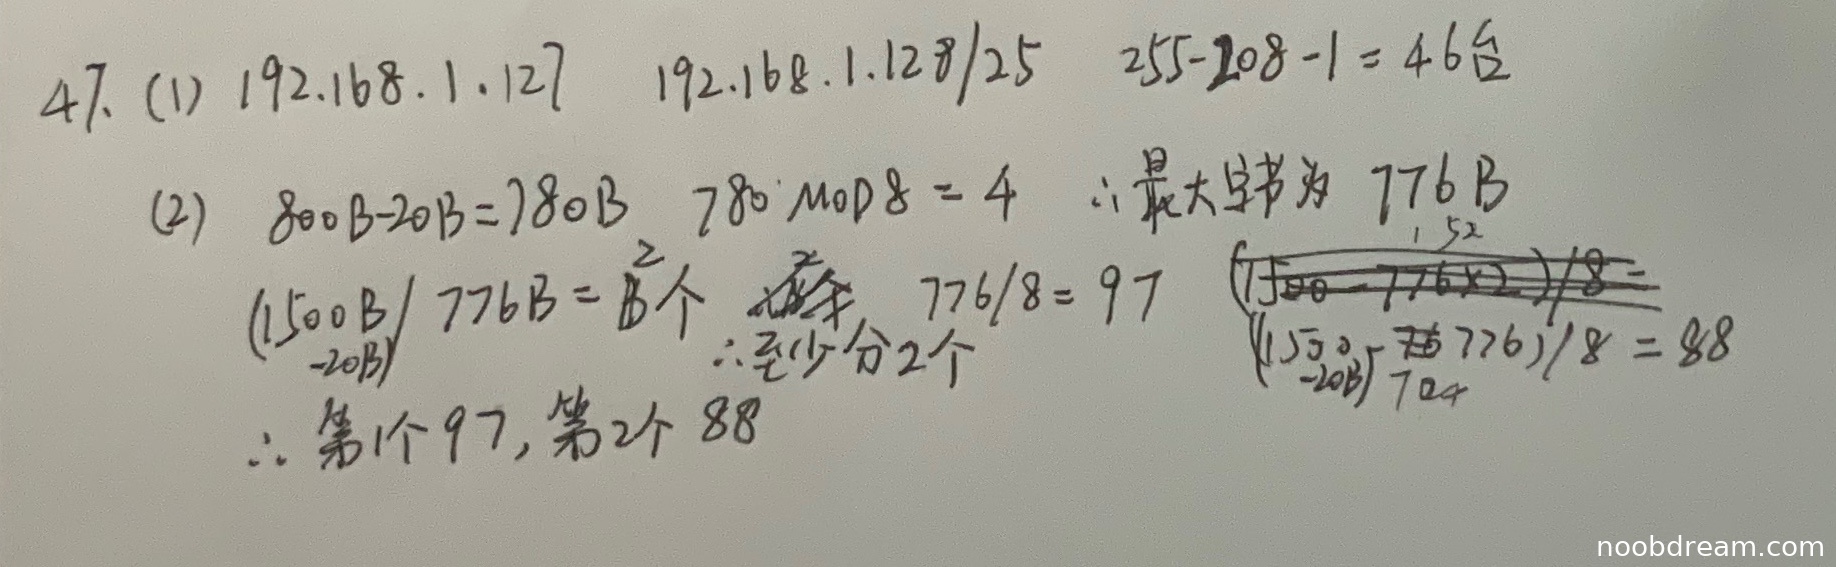 47. (1) 192.168.1.127 192.168.1.128/25 255-208-1=46台
(2) 800B-20B=780B 780 MOD 8 = 4 ∴最大字节为 776B
152
(1500B/776B=2个 776/8=97 (1500-776×2)/8=
-20B) ∴至少分2个 ((1500-776)/8=88
-20B) 704
∴第1个97,第2个88
noobdream.com